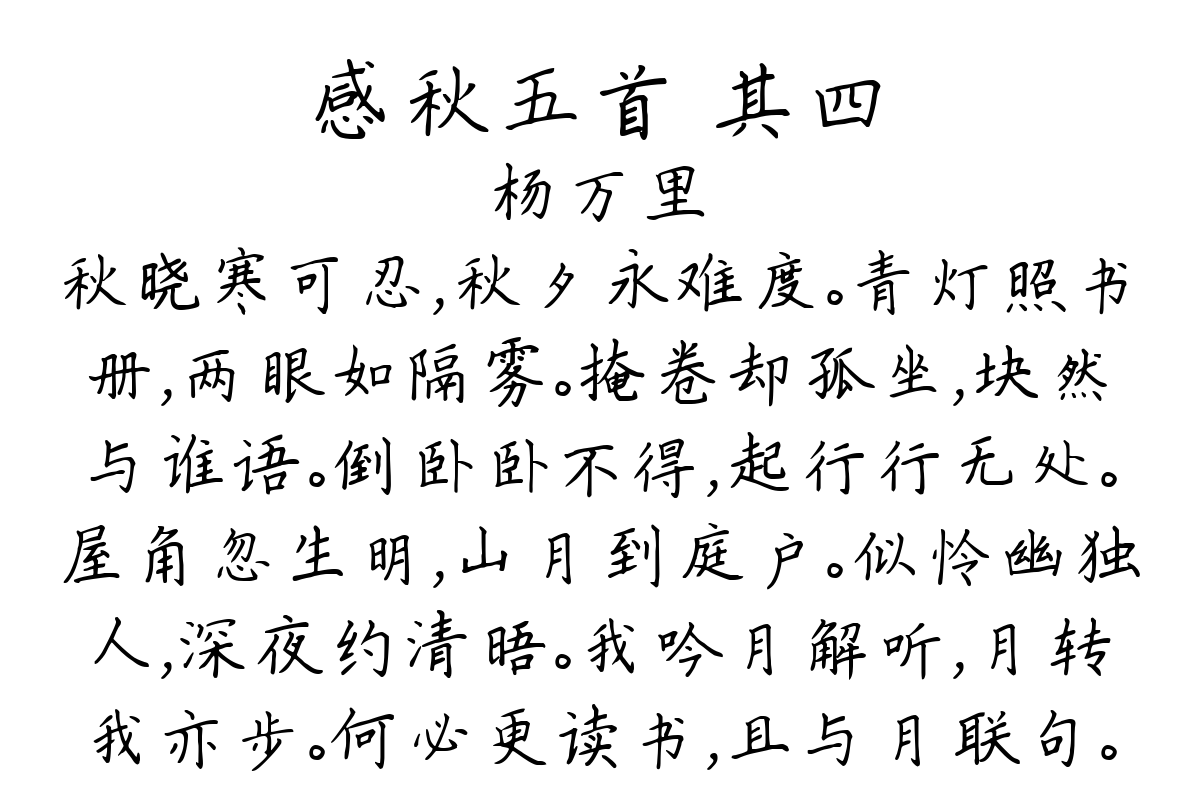 感秋五首 其四
杨万里
秋晓寒可忍,秋夕永难度。青灯照书
册,两眼如隔雾。掩卷却孤坐,块然
与谁语。倒卧卧不得,起行行无处。
屋角忽生明,山月到庭户。似怜幽独
人,深夜约清晤。我吟月解听,月转
我亦步。何必更读书,且与月联句。